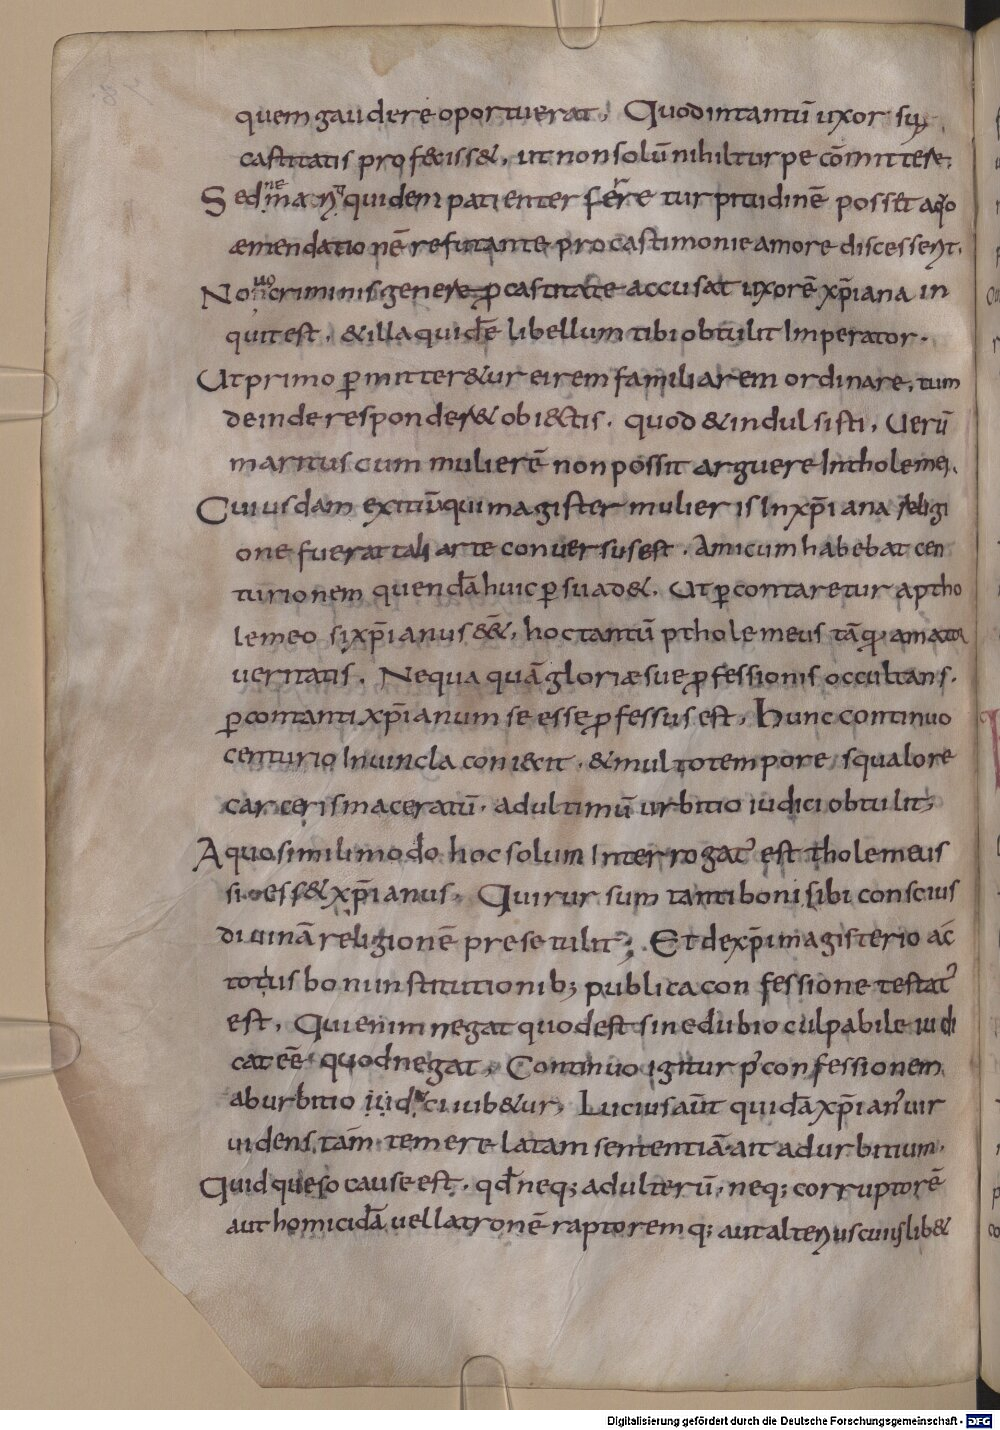 quem gaudere oportuerat. Quod intantū uxor suę
castitatis profecisset, ut non solū nihil turpe cōmitteret.
Sed quidem patienter ferre turpitudinē posset a quo
æmendationē refutante pro castimoniæ amore discessent.
Nouo criminis genere ꝓ castitate accusat uxorē xp̄iana in
quit est. & illa quidē libellum tibi obtulit Imperator.
Ut primo ꝑmitter&ur ei rem familiarem ordinare, tum
deinde responder& obiectis. quod & indulsisti. Uerū
maritus cum mulierē non possit arguere Intholemeū.
Cuiusdam exitiū qui magister mulieris In xp̄iana religi
one fuerat tali arte conuersus est. Amicum habebat cen
turionem quendā huic ꝑsuad&. Ut ꝑcontaretur aptho
lemeo si xp̄ianus ēē&, hoc tantū ptholemeus tāq; amator
ueritatis. Nequaquā gloriæ sue ꝓfessionis occultans.
ꝑcontanti xp̄ianum se esse ꝓfessus est. Hunc continuo
centurio In uincla coniecit. & multo tempore squalore
carceris maceratū. ad ultimū urbitio iudici obtulit;
A quo simili modo hoc solum Interrogat' est tholemeus
si ess& xp̄ianus. Qui rursum tanti boni sibi conscius
diuinā religionē pre se tulit; Et de xp̄i magisterio ac
totius boni institutionib; publica confessione testat'
est. Qui enim negat quod est sine dubio culpabile iudi
cat eē quod negat. Continuo igitur p' confessionem
ab urbitio iudici iub&ur. Lucius aūt quidā xp̄ian' uir
uidens tām temere latam sententiā. ait ad urbitium.
Quid queso cause est. qđ neq; adulterū, neq; corruptorē
aut homicidā uel latronē raptoremq; aut alterius cuiuslib&
Digitalisierung gefördert durch die Deutsche Forschungsgemeinschaft - DFG